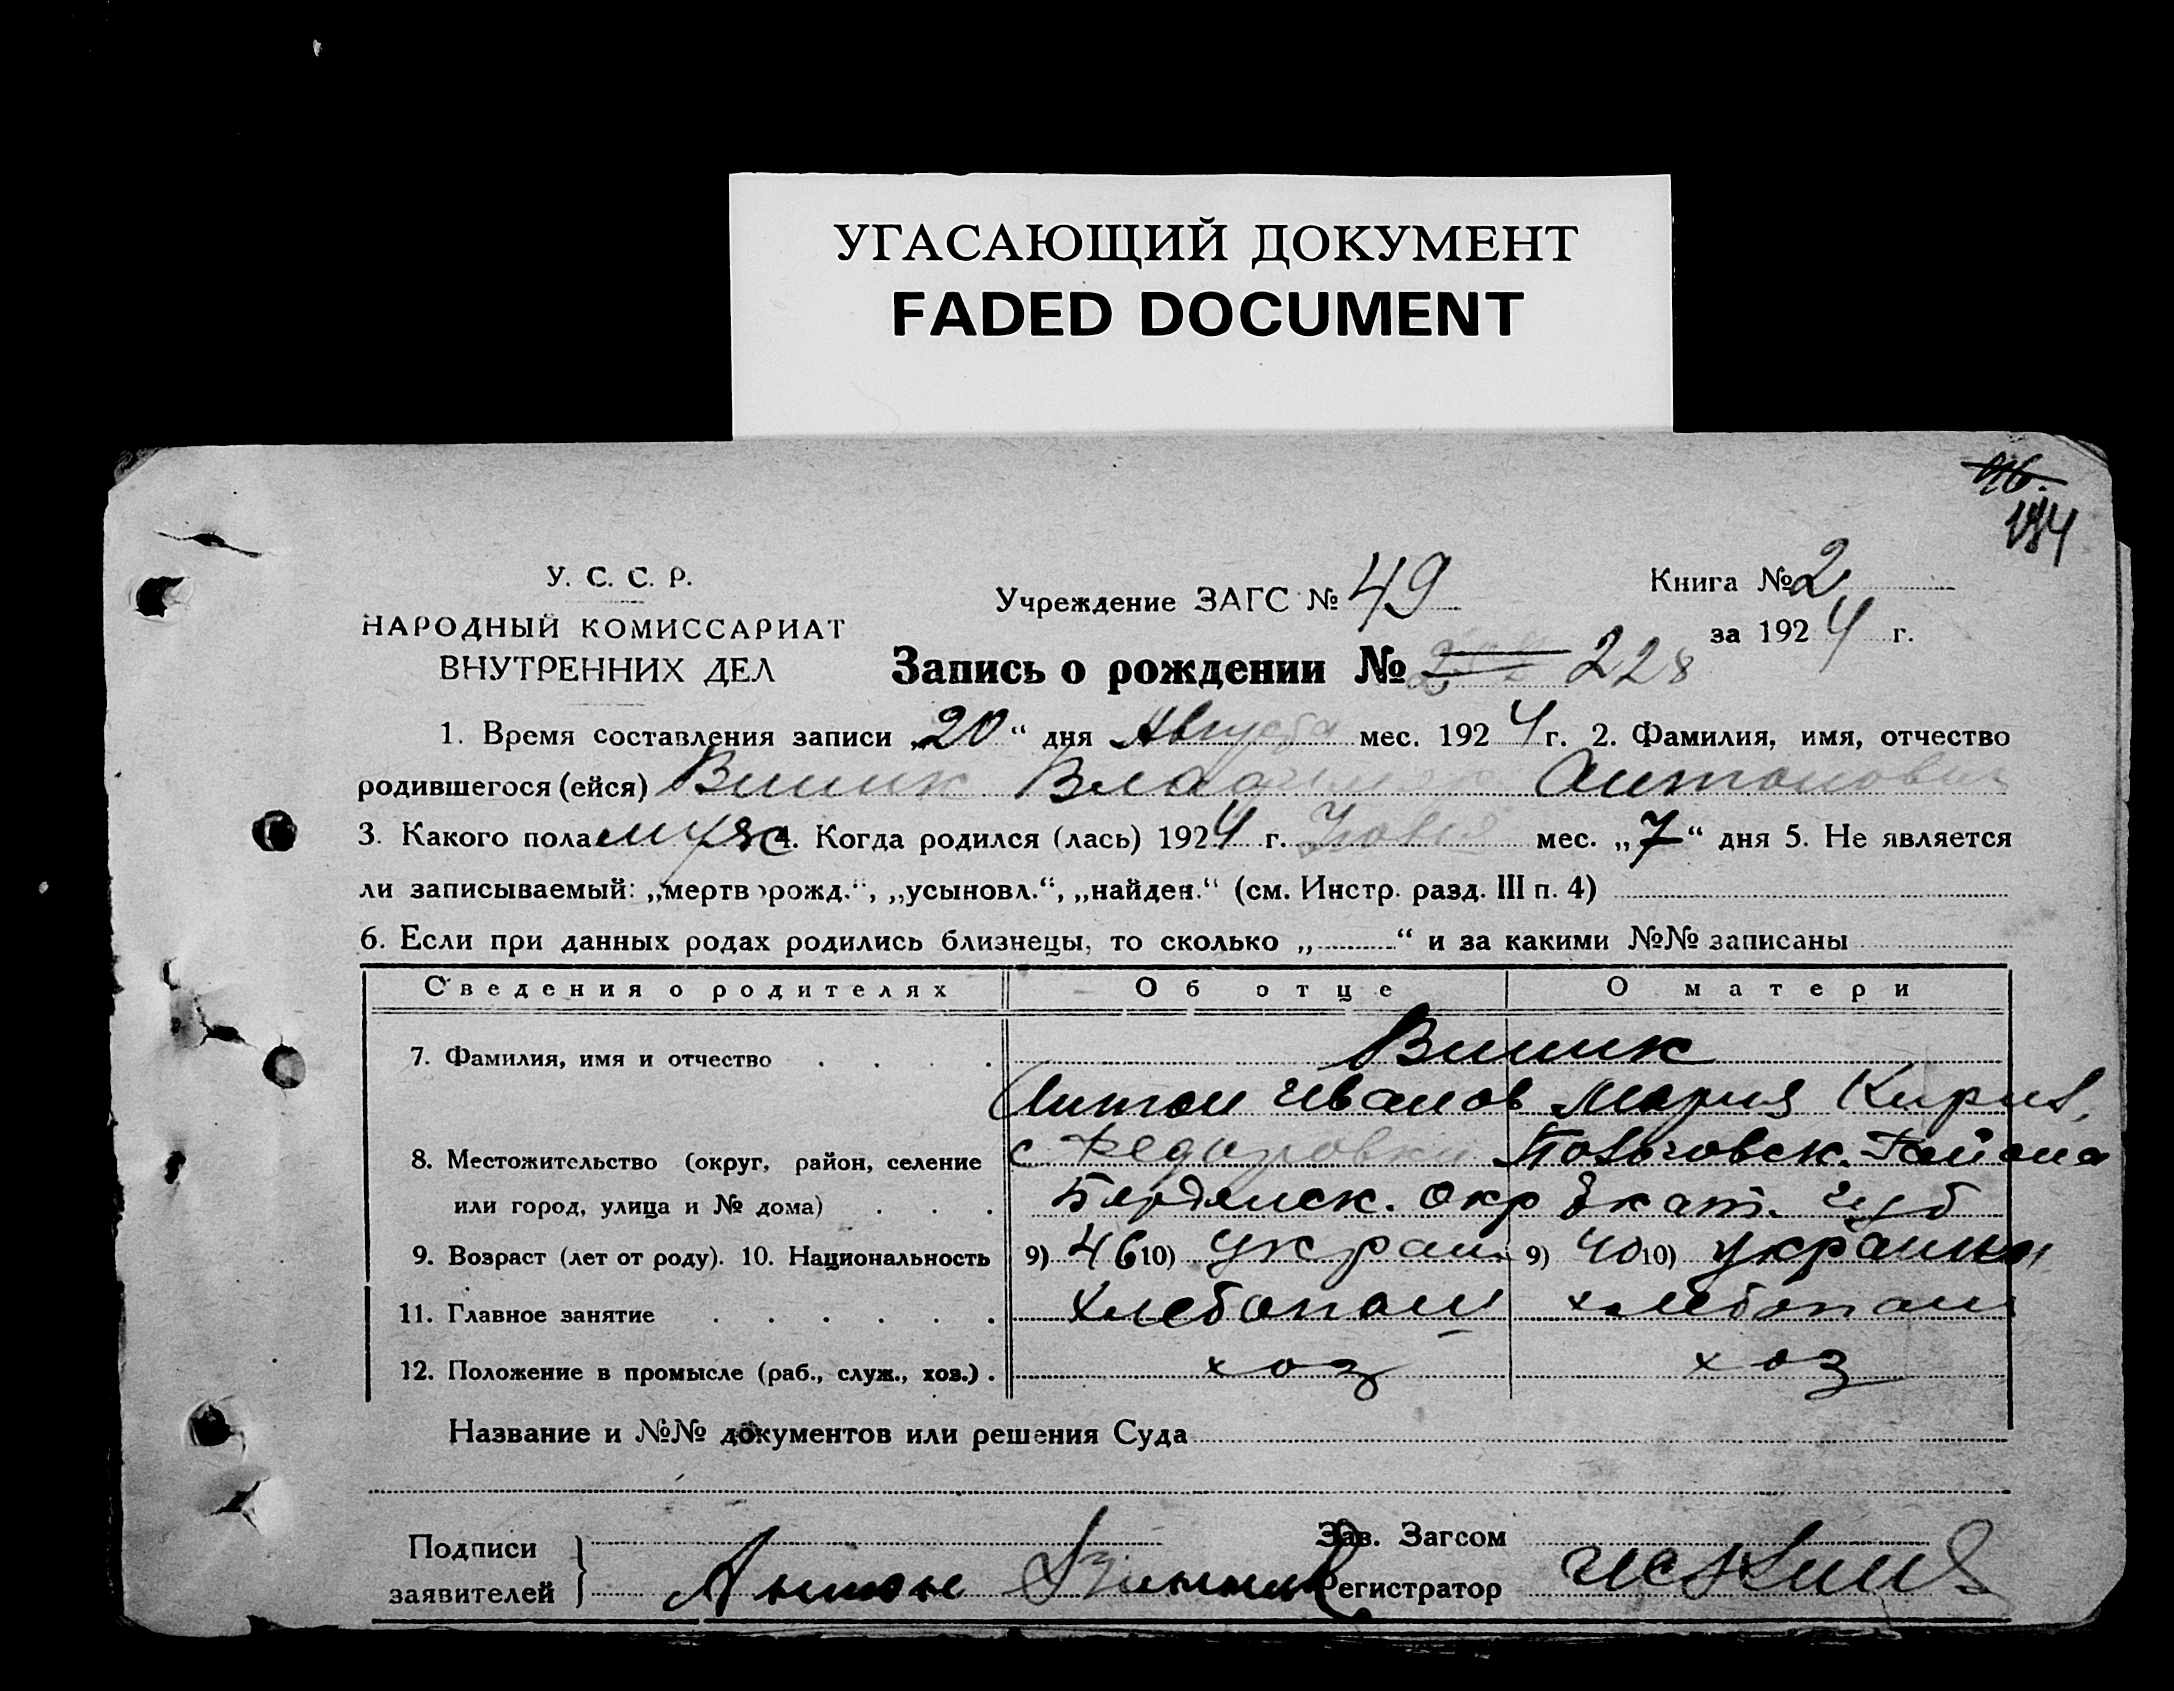 УГАСАЮЩИЙ ДОКУМЕНТ
FADED DOCUMENT
194
У. С. С. Р.
НАРОДНЫЙ КОМИССАРИАТ
ВНУТРЕННИХ ДЕЛ
Учреждение ЗАГС № 49
Книга № 2
за 1924 г.
Запись о рождении № 228
1. Время составления записи „20“ дня Августа мес. 1924 г. 2. Фамилия, имя, отчество
родившегося (ейся) Винник Владимир Антонович
3. Какого пола муж 4. Когда родился (лась) 1924 г. мес. „7“ дня 5. Не является
ли записываемый: „мертворожд.“, „усыновл.“, „найден.“ (см. Инстр. разд. III п. 4)
6. Если при данных родах родились близнецы, то сколько „ “ и за какими №№ записаны
Сведения о родителях Об отце О матери
7. Фамилия, имя и отчество Винник
Антон Иванов Мария Кирил.
8. Местожительство (округ, район, селение с Федоровки района
или город, улица и № дома) Бердянск. окр Екат. губ
9. Возраст (лет от роду). 10. Национальность 9) 46 10) украин 9) 40 10) украинка
11. Главное занятие хлебопаш хлебопаш
12. Положение в промысле (раб., служ., хоз.) хоз хоз
Название и №№ документов или решения Суда
Подписи
заявителей Антон Винник
Зав. Загсом
Регистратор